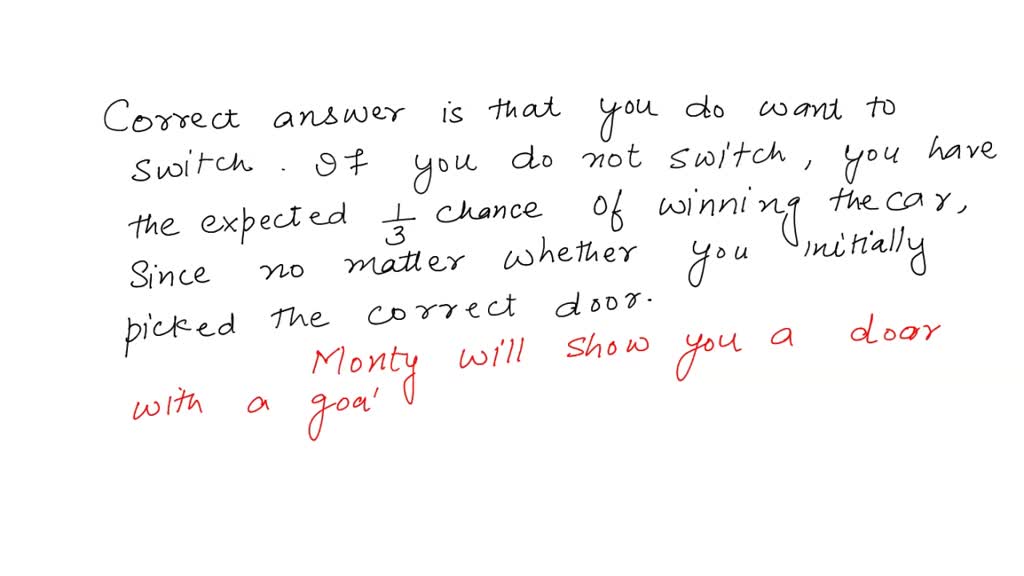 Correct answer is that you do want to
switch. If you do not switch, you have
the expected 1/3 chance of winning the car,
Since no matter whether you initially
picked the correct door.
Monty will show you a door
with a goa'